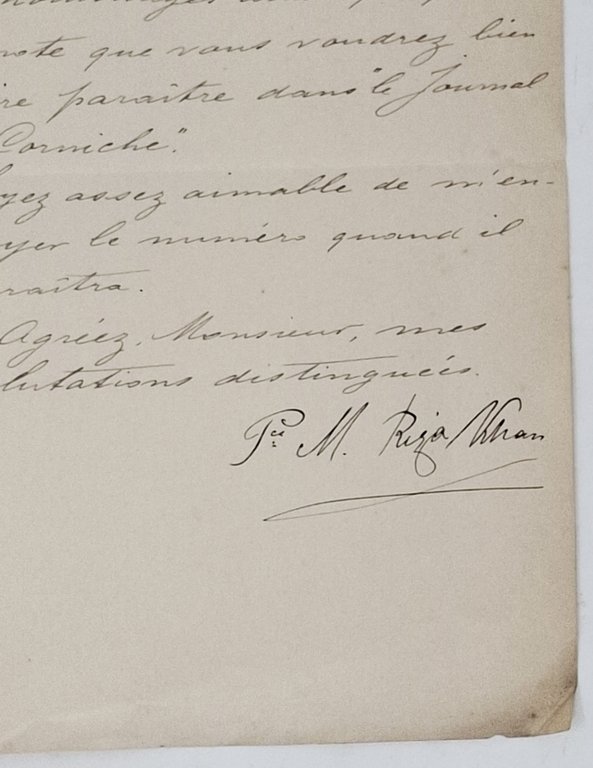 note que vous voudrez bien
re paraître dans "le Journal
Corniche".
yez assez aimable de m'en-
yer le numéro quand il
raîtra.
Agréez, Monsieur, mes
lutations distinguées.
Pce M. Riza Khan